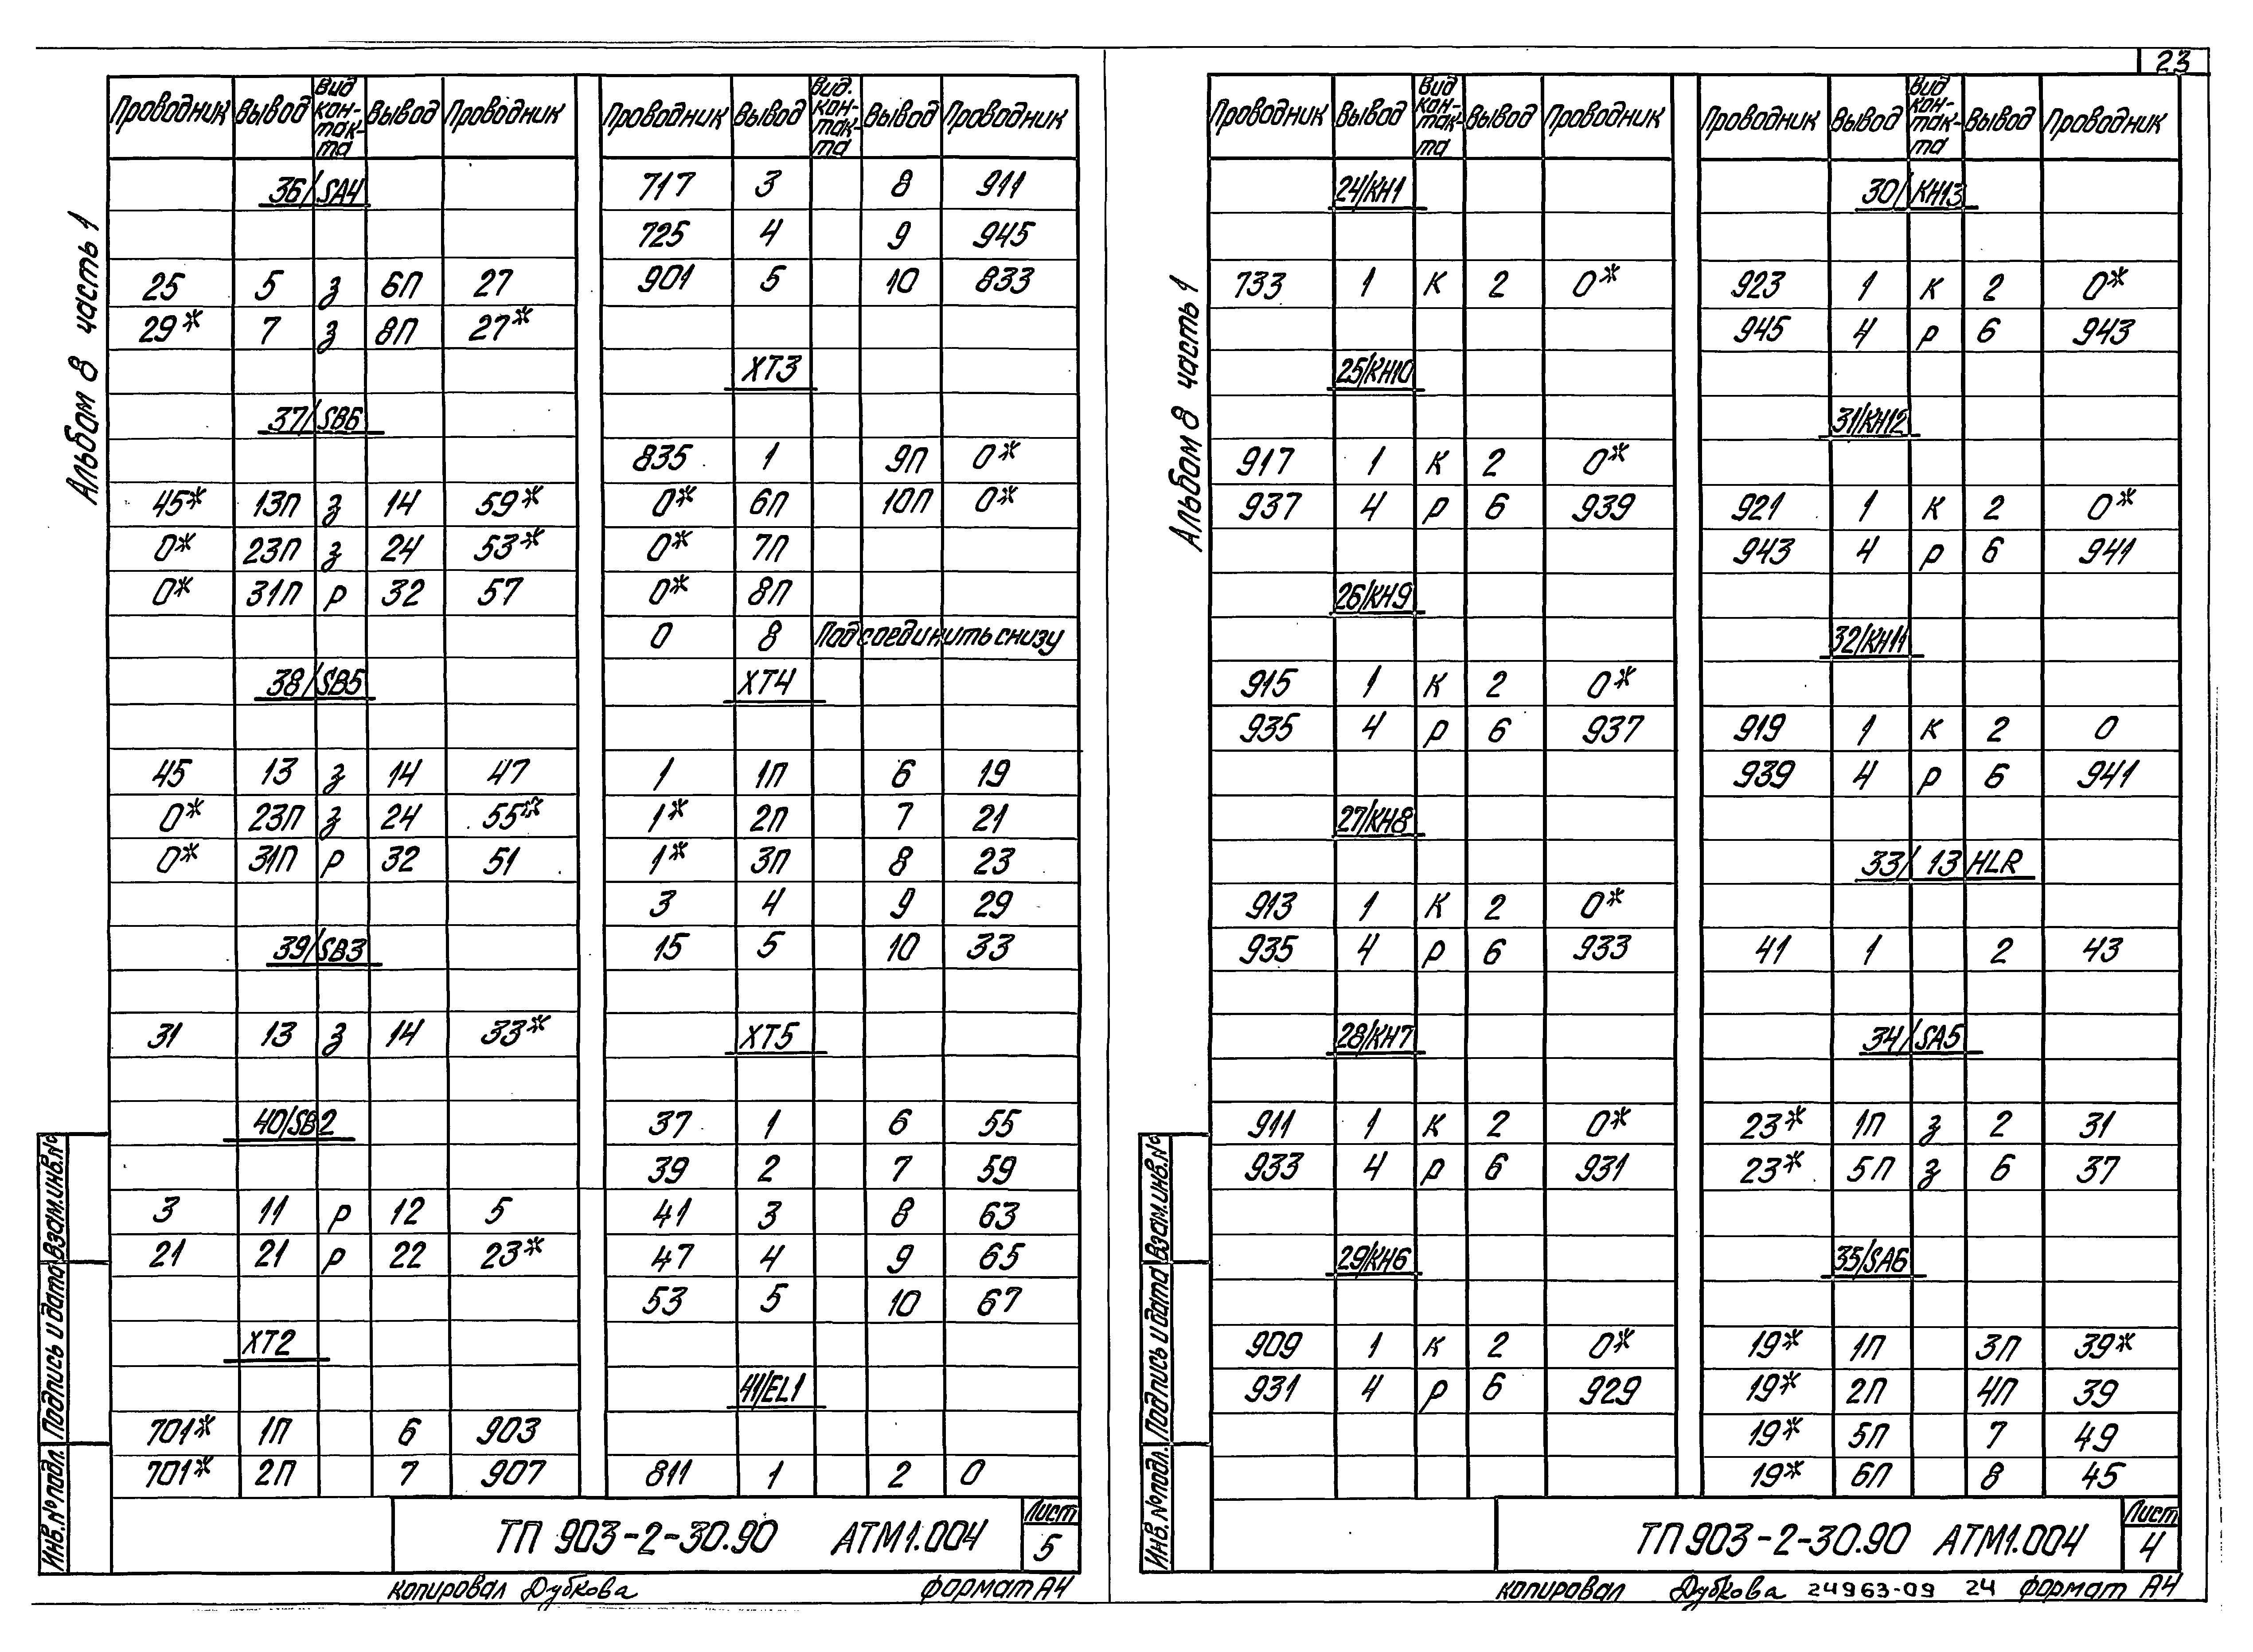 23
Альбом 8 часть 1
Проводник Вывод Вид кон-так-та Вывод Проводник
36/SA4
25 5 з 6П 27
29* 7 з 8П 27*
37/SB6
45* 13П з 14 59*
0* 23П з 24 53*
0* 31П р 32 57
38/SB5
45 13 з 14 47
0* 23П з 24 55*
0* 31П р 32 51
39/SB3
31 13 з 14 33*
40/SB2
3 11 р 12 5
21 21 р 22 23*
XT2
701* 1П 6 903
701* 2П 7 907
Проводник Вывод Вид. кон-так-та Вывод Проводник
717 3 8 911
725 4 9 945
901 5 10 833
XT3
835 1 9П 0*
0* 6П 10П 0*
0* 7П
0* 8П
0 8 Подсоединить снизу
XT4
1 1П 6 19
1* 2П 7 21
1* 3П 8 23
3 4 9 29
15 5 10 33
XT5
37 1 6 55
39 2 7 59
41 3 8 63
47 4 9 65
53 5 10 67
41/EL1
811 1 2 0
Инв.№ подл. Подпись и дата Взам.инв.№
ТП 903-2-30.90 АТМ1.004
Лист
5
копировал Дубкова формат А4
Альбом 8 часть 1
Проводник Вывод Вид кон-так-та Вывод Проводник
24/КН1
733 1 К 2 0*
25/КН10
917 1 К 2 0*
937 4 Р 6 939
26/КН9
915 1 К 2 0*
935 4 Р 6 937
27/КН8
913 1 К 2 0*
935 4 Р 6 933
28/КН7
911 1 К 2 0*
933 4 Р 6 931
29/КН6
909 1 К 2 0*
931 4 Р 6 929
Проводник Вывод Вид кон-так-та Вывод Проводник
30/КН13
923 1 К 2 0*
945 4 Р 6 943
31/КН12
921 1 К 2 0*
943 4 Р 6 941
32/КН11
919 1 К 2 0
939 4 Р 6 941
33/13HLR
41 1 2 43
34/SA5
23* 1П з 2 31
23* 5П з 6 37
35/SA6
19* 1П 3П 39*
19* 2П 4П 39
19* 5П 7 49
19* 6П 8 45
Инв.№ подл. Подпись и дата Взам.инв.№
ТП 903-2-30.90 АТМ1.004
Лист
4
копировал Дубкова 24963-09 24 формат А4